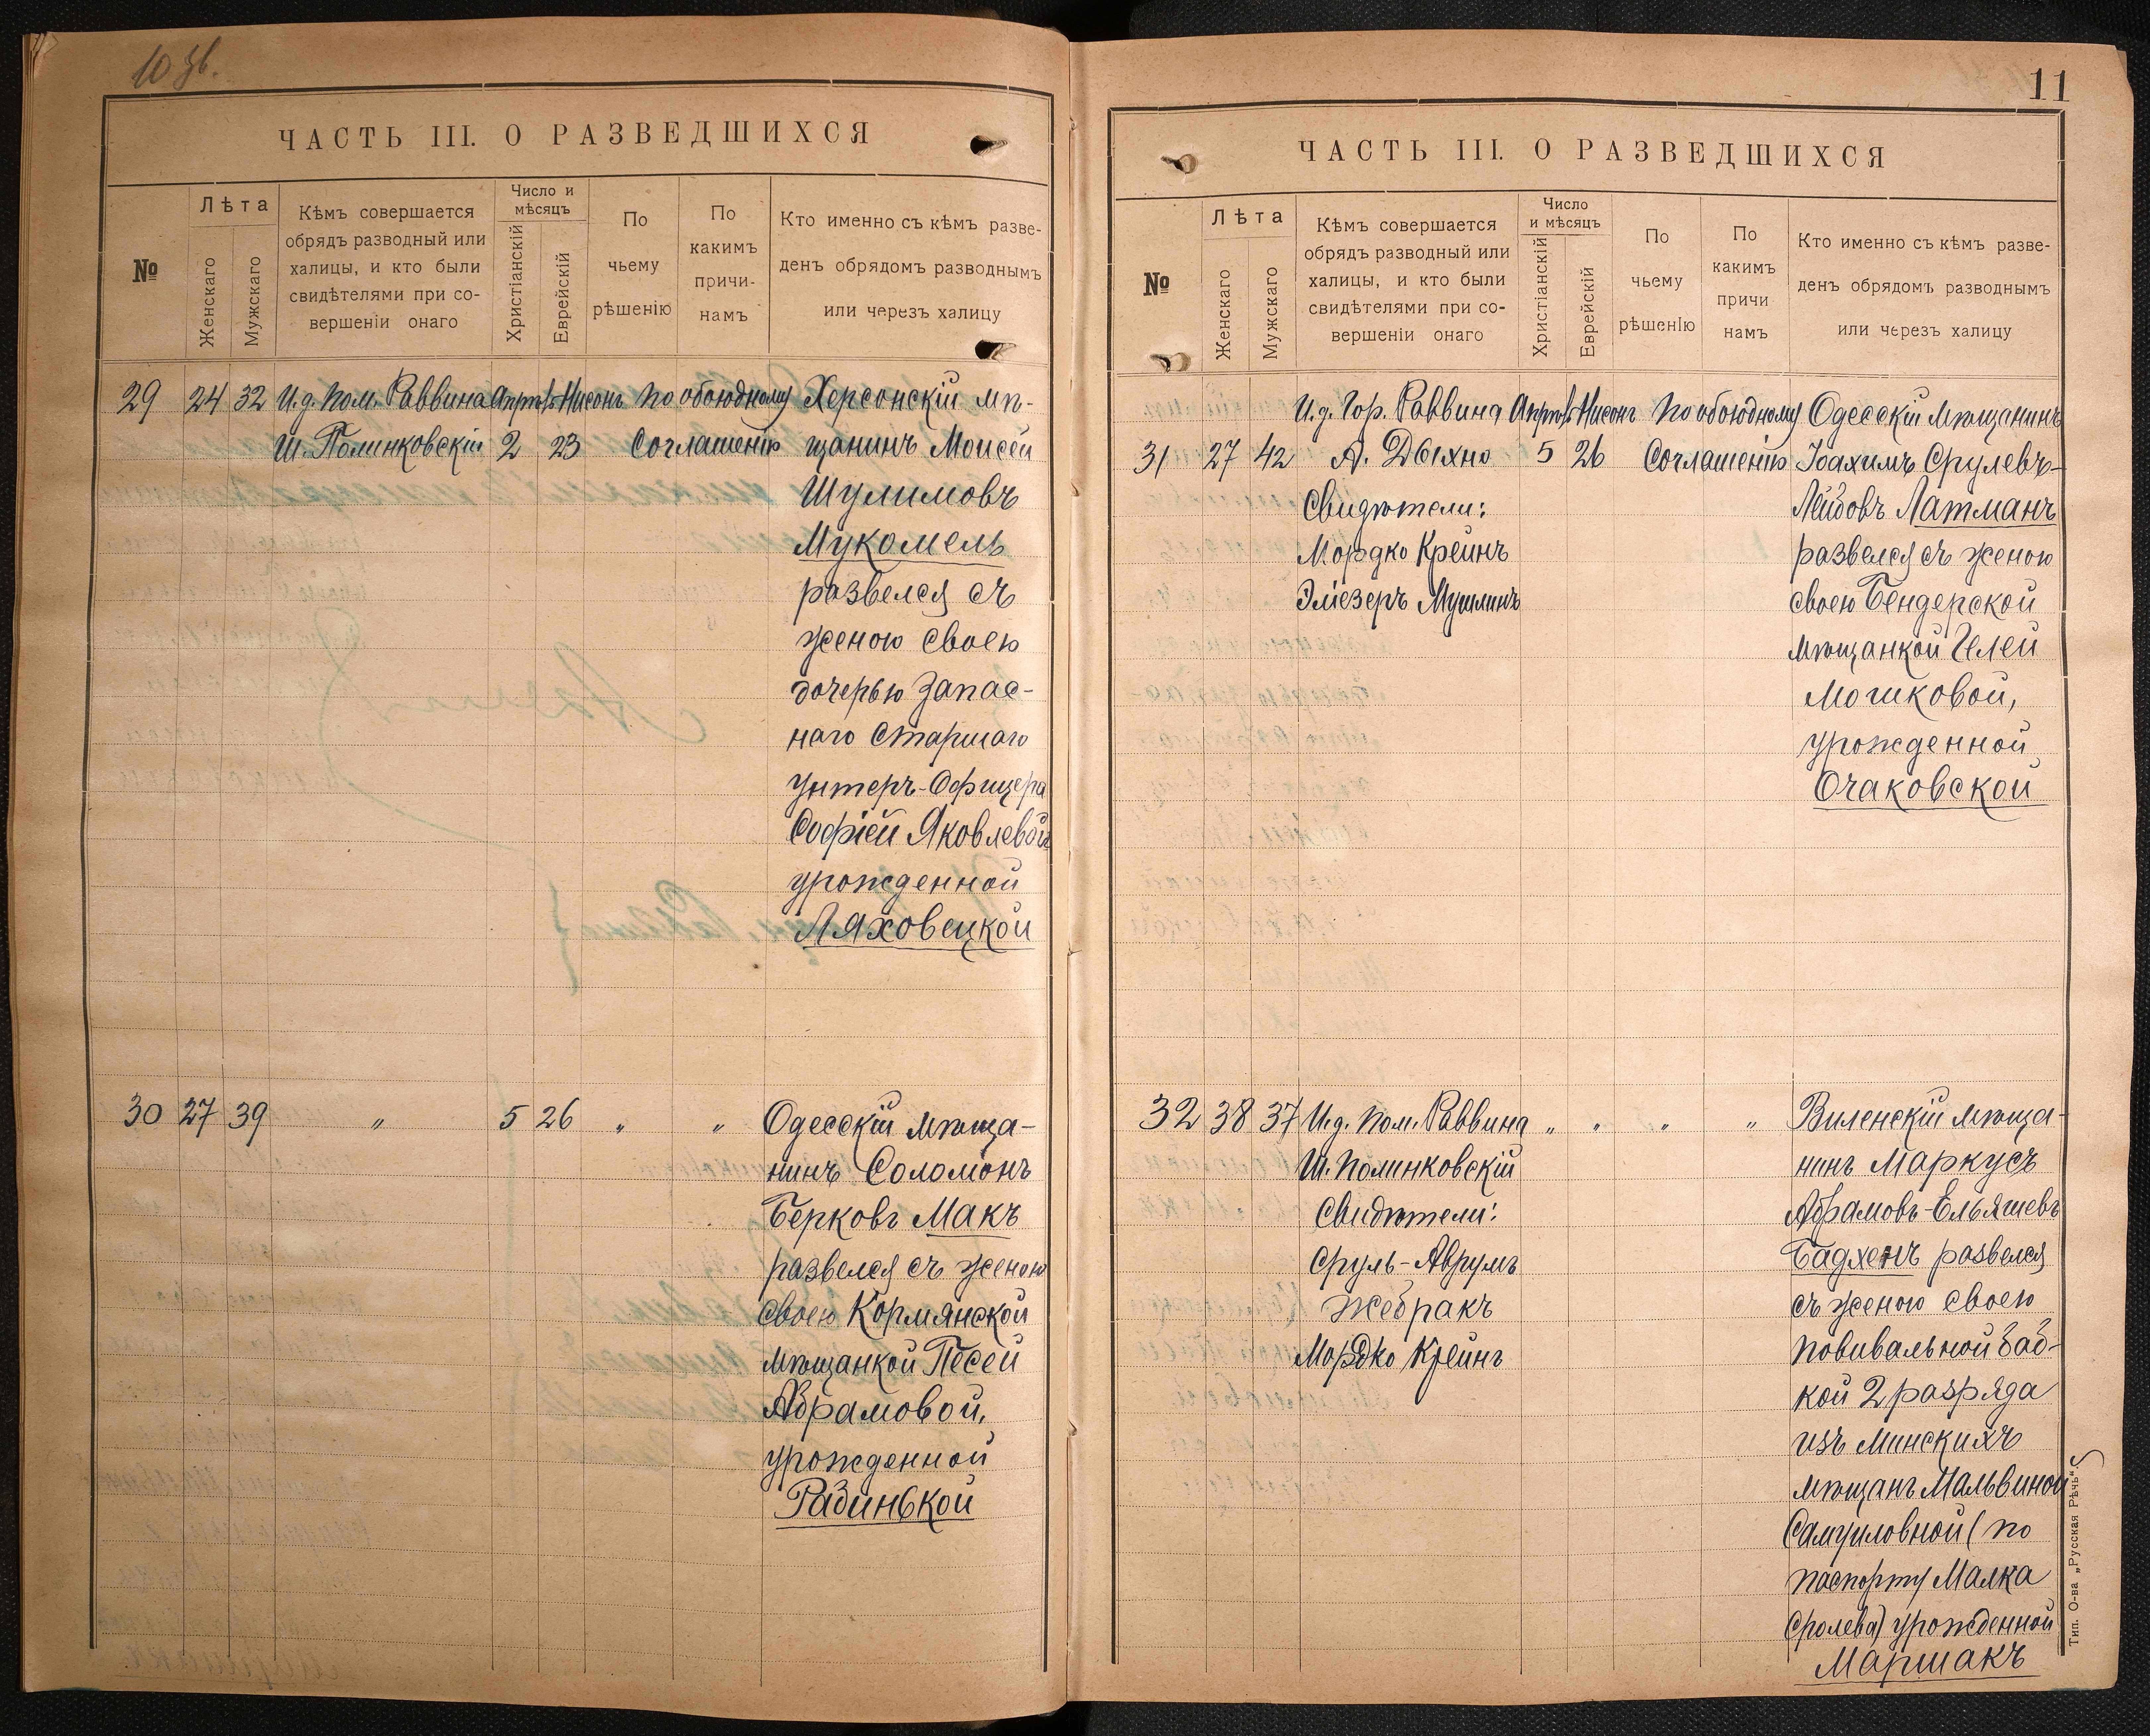 10 зв.
ЧАСТЬ III. О РАЗВЕДШИХСЯ
№
Лѣта
Женскаго
Мужскаго
Кѣмъ совершается
обрядъ разводный или
халицы, и кто были
свидѣтелями при со-
вершеніи онаго
Число и
мѣсяцъ
Христіанскій
Еврейскій
По
чьему
рѣшенію
По
какимъ
причи-
намъ
Кто именно съ кѣмъ разве-
денъ обрядомъ разводнымъ
или черезъ халицу
29 24 32 И.д. Пом. Раввина Апрѣль Нисонъ По обоюдному Херсонскій мѣ-
Ш. Полинковскій 2 23 Соглашенію щанинъ Моисей
Шулимовъ
Мукомель
развелся съ
женою своею
дочерью запас-
наго Старшаго
Унтеръ-Офицера
Софіей Яковлевой
урожденной
Ляховецкой
30 27 39 " 5 26 " " Одесскій мѣща-
нинъ Соломонъ
Берковъ Макъ
развелся съ женою
своею Кормянской
мѣщанкой Песей
Абрамовой,
урожденной
Рабинькой
11
ЧАСТЬ III. О РАЗВЕДШИХСЯ
№
Лѣта
Женскаго
Мужскаго
Кѣмъ совершается
обрядъ разводный или
халицы, и кто были
свидѣтелями при со-
вершеніи онаго
Число
и мѣсяцъ
Христіанскій
Еврейскій
По
чьему
рѣшенію
По
какимъ
причи
намъ
Кто именно съ кѣмъ разве-
денъ обрядомъ разводнымъ
или черезъ халицу
И.д. Гор. Раввина Апрѣль Нисонъ По обоюдному Одесскій мѣщанинъ
31 27 42 А. Дыхно 5 26 Соглашенію Іоахимъ Срулевъ-
Свидѣтели: Лейбовъ Латманъ
Мордко Крейнъ развелся съ женою
Эліезеръ Мушлинъ своею Бендерской
мѣщанкой Гелей
Мошковой,
урожденной
Очаковской
32 38 37 И.д. Пом. Раввина " " " " Виленскій мѣща-
Ш. Полинковскій нинъ Маркусъ
Свидѣтели: Абрамовъ-Ельяшевъ
Сруль-Аврумъ Бадхенъ развелся
Жебракъ съ женою своею
Мордко Крейнъ повивальной баб-
кой 2 разряда
изъ Минскихъ
мѣщанъ Мальвиной
Самуиловной (по
паспорту Малка
Сролева) урожденной
Маршакъ
Тип. О-ва „Русская Рѣчь".